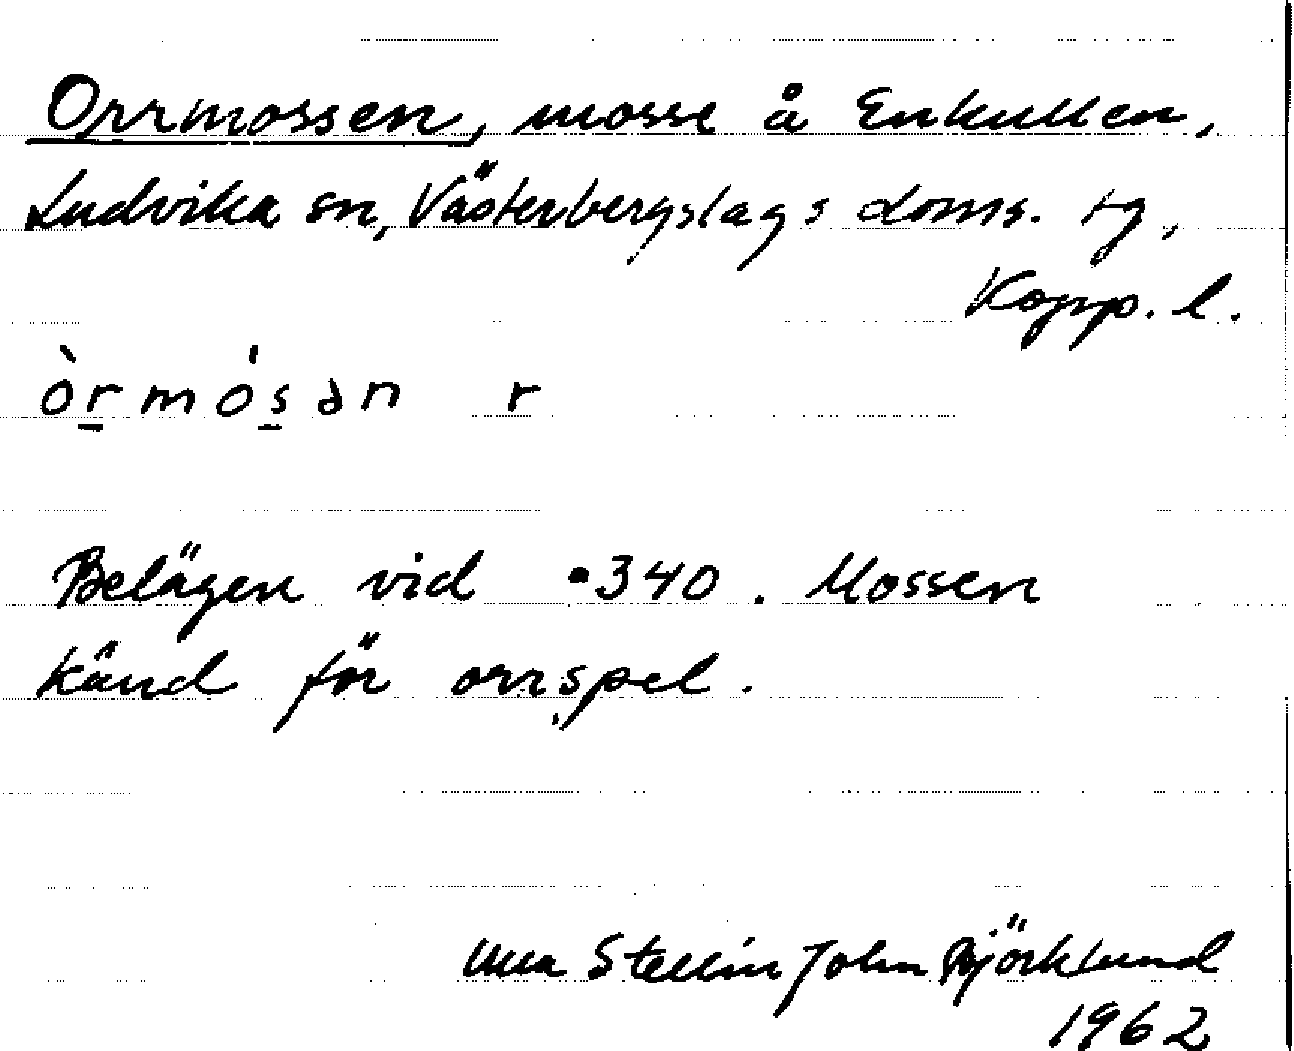 Orrmossen, mosse å Enkullen,
Ludvika sn, Västerbergslags doms. tg,
Kopp. l.
òr̲mós̲ən r
Belägen vid •340. Mossen
känd för orrspel.
Ulla Stellin John Björklund
1962